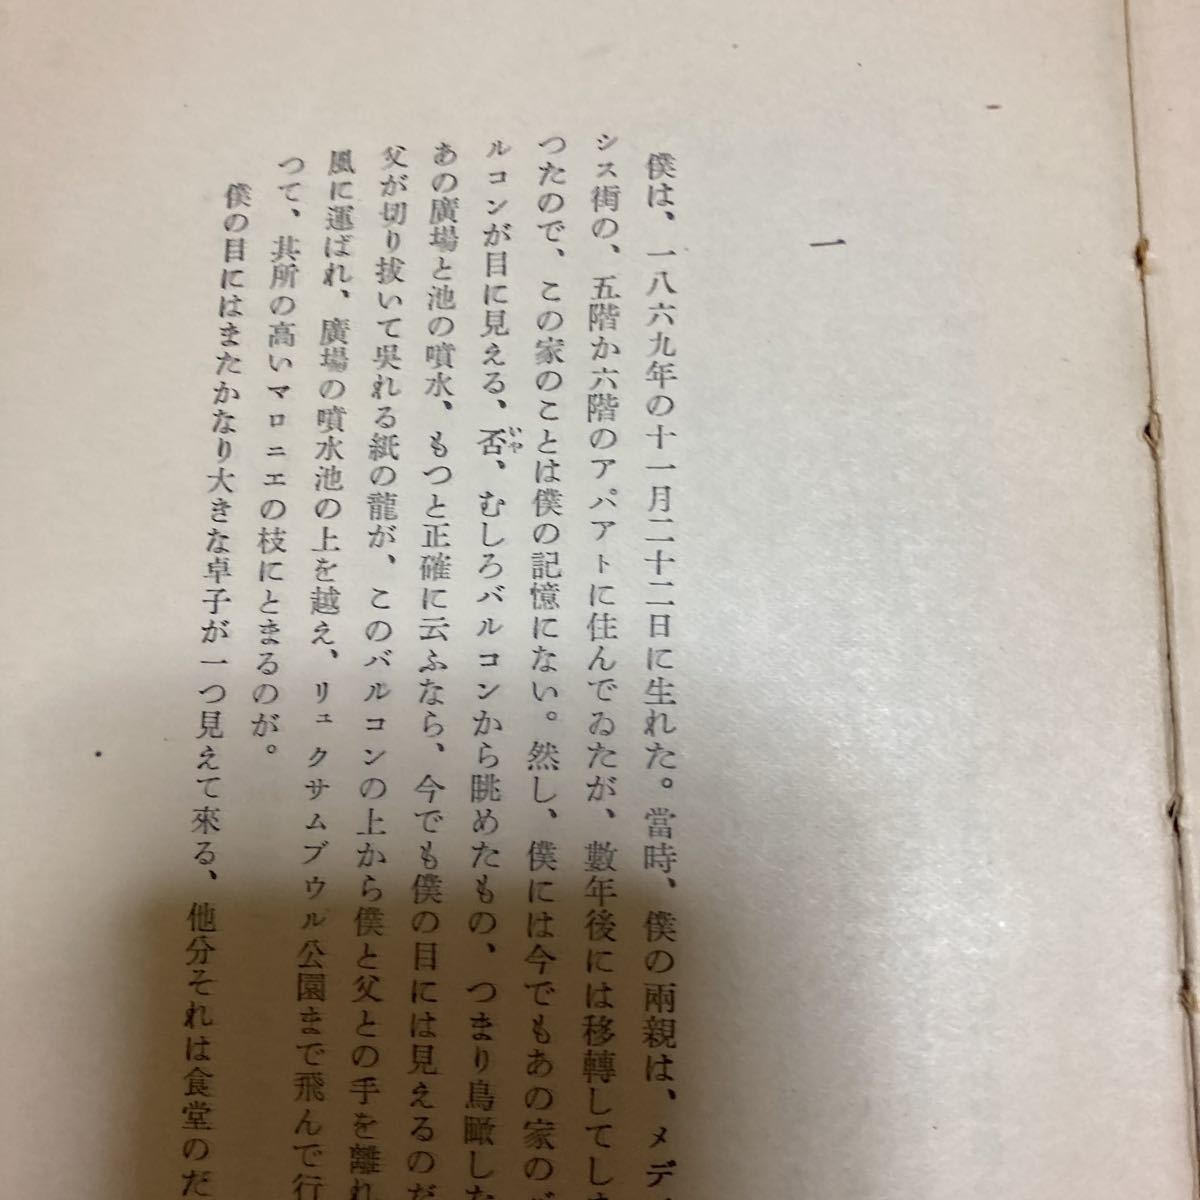 一
僕は、一八六九年の十一月二十二日に生れた。當時、僕の兩親は、メデ
シス街の、五階か六階のアパアトに住んでゐたが、數年後には移轉してし
つたので、この家のことは僕の記憶にない。然し、僕には今でもあの家の
ルコンが目に見える、否いや、むしろバルコンから眺めたもの、つまり鳥瞰した
あの廣場と池の噴水、もつと正確に云ふなら、今でも僕の目には見えるのだ
父が切り拔いて吳れる紙の龍が、このバルコンの上から僕と父との手を離れ
風に運ばれ、廣場の噴水池の上を越え、リュクサムブウル公園まで飛んで行
つて、其所の高いマロニエの枝にとまるのが。
僕の目にはまたかなり大きな卓子が一つ見えて來る、他分それは食堂のだ